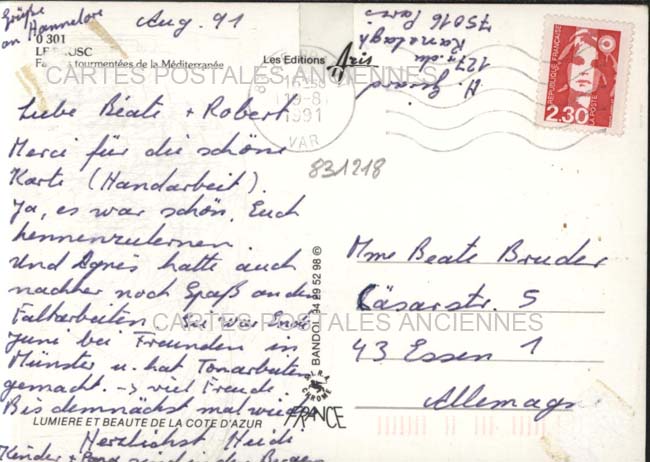 Grüße
an Hannelore
Aug. 91
0 301
LE BRUSC
tourmentées de la Méditerranée
Les Editions Aris
127 r. du
Ranelagh
75016 Paris
16
19-8
1991
VAR
REPUBLIQUE FRANÇAISE
LA POSTE
2.30
CARTES POSTALES ANCIENNES
Liebe Beate + Robert
Merci für die schöne
Karte (Handarbeit).
Ja, es war schön, Euch
kennenzulernen.
Und Agnès hatte auch
nachher noch Spaß an den
Faltarbeiten. Sie war Ende
Juni bei Freunden in
Münster u. hat Tonarbeiten
gemacht. -> viel Freude
Bis demnächst mal wieder
Herzlichst Heidi
831218
BANDOL 94 29 52 98 ©
Mme Beate Bruder
Cäsarstr. 5
CARTES POSTALES ANCIENNES
43 Essen 1
Allemagne
LUMIERE ET BEAUTE DE LA COTE D'AZUR
FRANCE
Kinder +